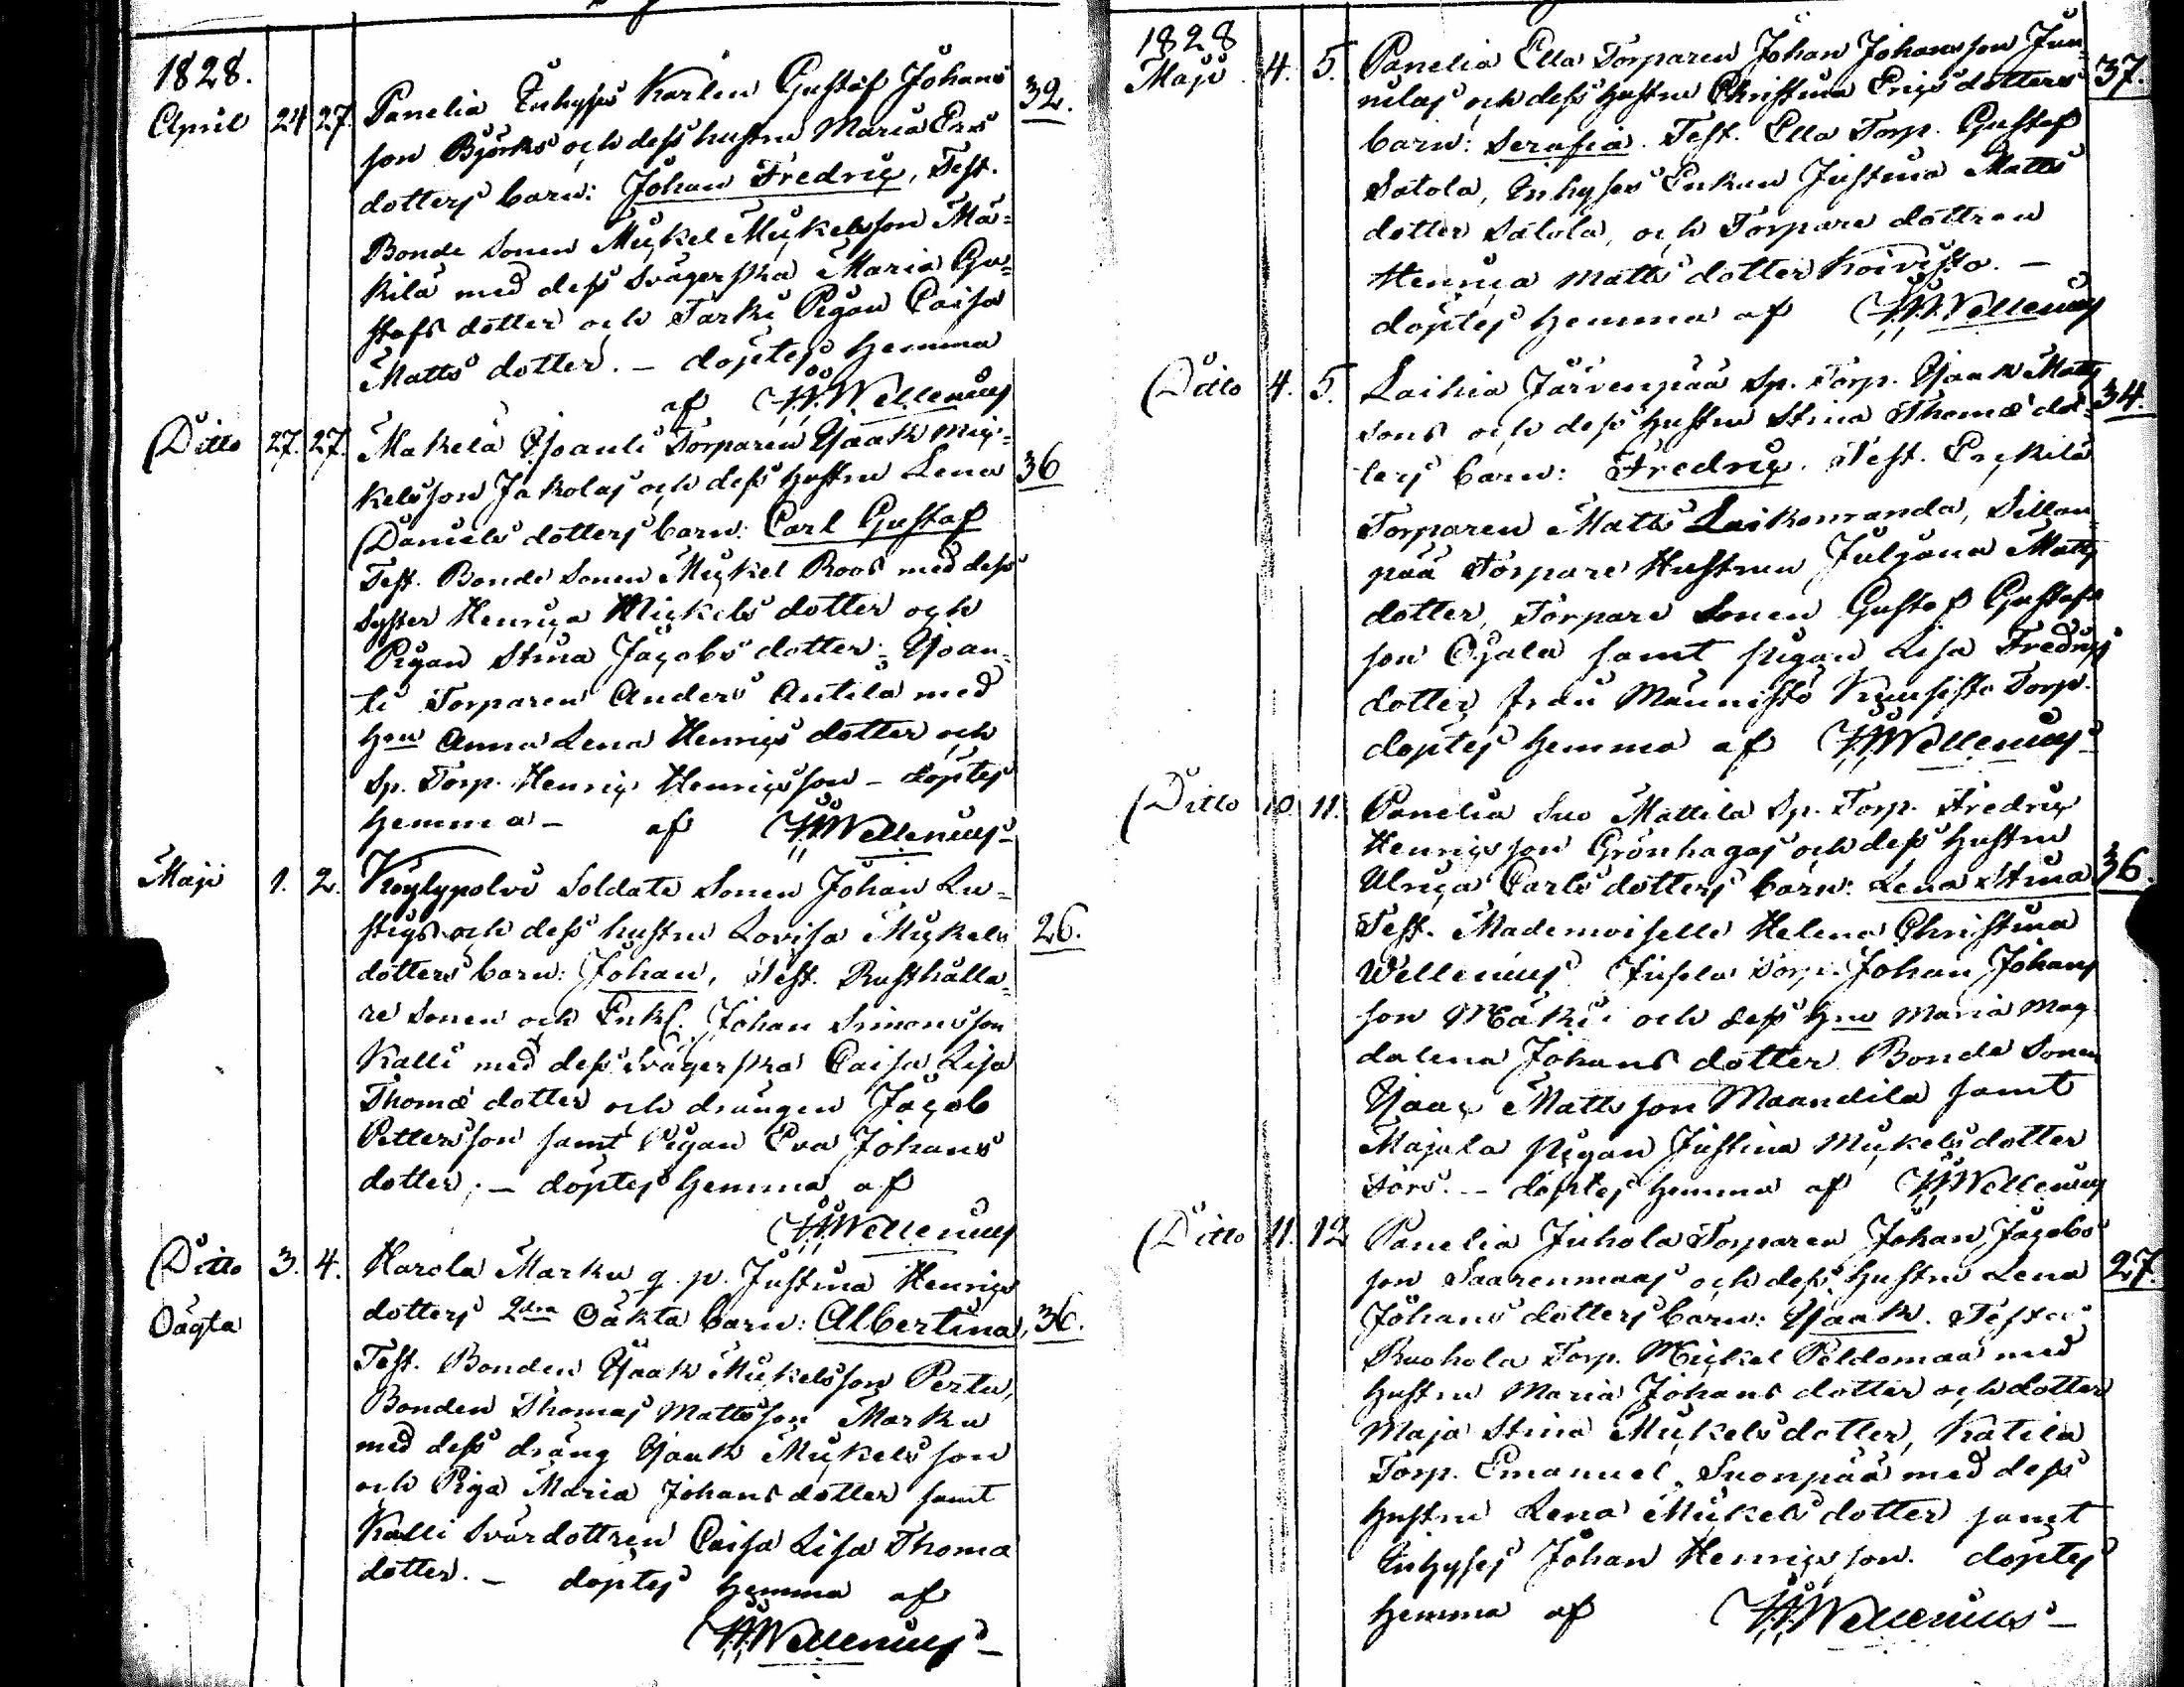 1828.
April 24 27. Panelia Inhyses Karlen Gustaf Johans 32.
son Björks och dess hustru Maria Ers
dotters barn: Johan Fredric, Test.
Bonde Sonen Mickel Mickelsson Mä-
kilä med dess Svägerska Maria Gu-
stafs dotter och Tarki Pigan Caisa
Matts dotter. – döptes hemma
af Wellenius
Ditto 27. 27. Makela Isaak Mic-
kelsson Jakolas och dess hustru Lena 36
Daniels dotters barn: Carl Gustaf
Test. Bonde Sonen Mickel Roos med dess
Syster Henrica Mickels dotter och
Pigan Stina Jacobs dotter
Torparen Anders Antila med
Hru Anna Lena Henrics dotter och
Sp. Torp. Henric Henricsson – döptes
hemma – af Wellenius –
Maji 1. 2. Köylypolvi Soldate Sonen Johan Lu-
stigs och dess hustru Lovisa Mickels 26.
dotters barn: Johan, Test. Rusthålla-
re Sonen och Enkl. Johan Simonsson
Kalli med dess Svägerska Caisa Lisa
Thomæ dotter och drängen Jacob
Pettersson samt Pigan Eva Johans
dotter; – döptes hemma af
Wellenius
Ditto 3. 4. Harola Marku q. p. Justina Henrics
Oägta dotters 2dra Oäkta barn: Albertina, 36.
Test. Bonden Isaak Mickelsson Pertu,
Bonden Thomas Mattsson Marku
med dess dräng Isaak Mickelsson
och Piga Maria Johans dotter samt
Kalli Svärdottren Caisa Lisa Thomæ
dotter. – döptes hemma af
Wellenius –
1828
Maji 4. 5. Panelia Ella Torparen Johan Johansson Jun-
nilas och dess hustru Christina Erics dotters 37.
barn: Serafia. Test. Ella Torp. Gustaf
Satola, Inhyses Enkan Justina Matts
dotter Satola, och Torpare dottren
Henrica Matts dotter Koivisto. –
döptes hemma af Wellenius
Ditto 4. 5. Laihia Järvenpää Sp. Torp. Isaak Matts
sons och dess hustru Stina Thomæ dot- 34.
ters barn: Fredric. Test. Erckilä
Torparen Matts Laikonranda, Sillan-
pää Torpare Hustrun Juljana Matts
dotter, Torpare Sonen Gustaf Gustafs
son Ojala samt pigan Lisa Fredrics
dotter från Männistö Torp.
döptes hemma af Wellenius –
Ditto 10. 11. Panelia Suo Mattila Sp. Torp. Fredric
Henricsson Grönhagas och dess hustru
Ulrica Carls dotters barn: Lena Stina 36.
Test. Mademoiselle Helena Christina
Wellenius Torp. Johan Johans
son Mäki och dess Hru Maria Mag-
dalena Johans dotter Bonde Sonen
Isaac Mattsson Maandila samt
Majala pigan Justina Mickels dotter
Sörs. – döptes hemma af Wellenius
Ditto 11. 12 Panelia Juhola Torparen Johan Jacobs
son Saarenmaas och dess hustru Lena 27.
Johans dotters barn: Isaak. Testes
Ruohola Torp. Mickel Peldomaa med
hustru Maria Johans dotter och dotter
Maja Stina Mickels dotter, Katila
Torp. Emanuel Suonpää med dess
hustru Lena Mickels dotter samt
Inhyses Johan Henricsson. döptes
hemma af Wellenius –